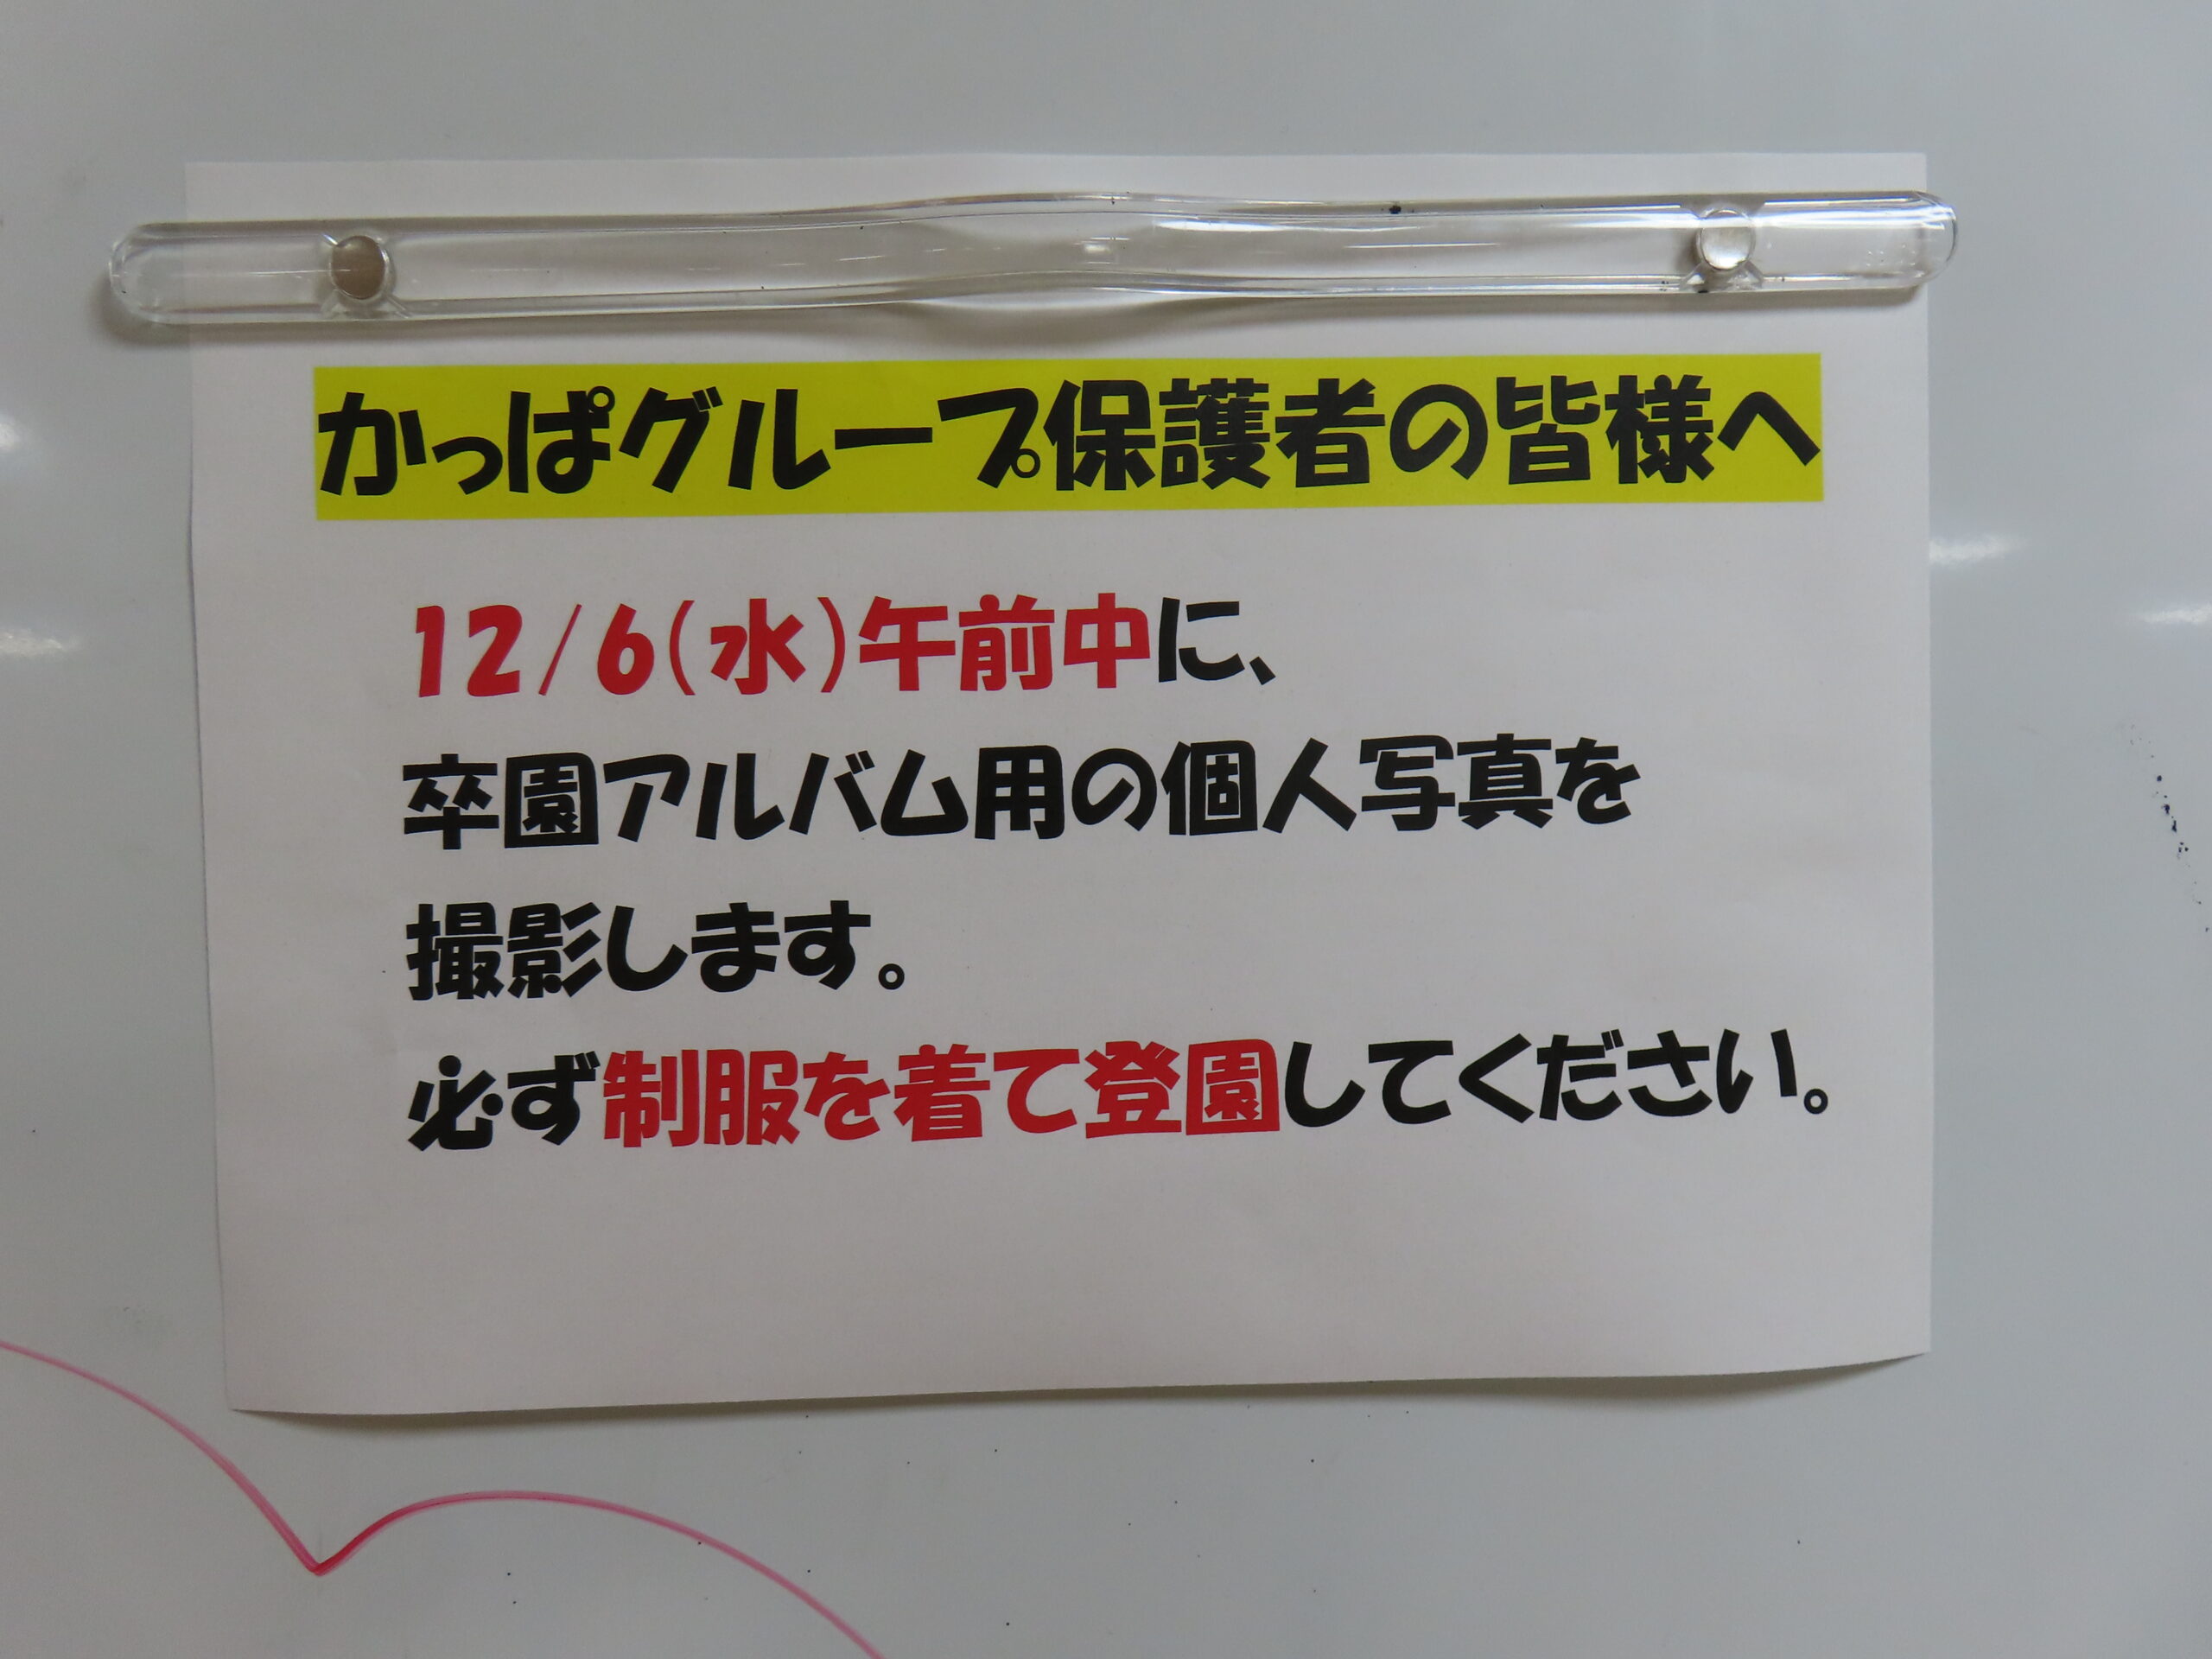 かっぱグループ保護者の皆様へ
12/6(水)午前中に、
卒園アルバム用の個人写真を
撮影します。
必ず制服を着て登園してください。